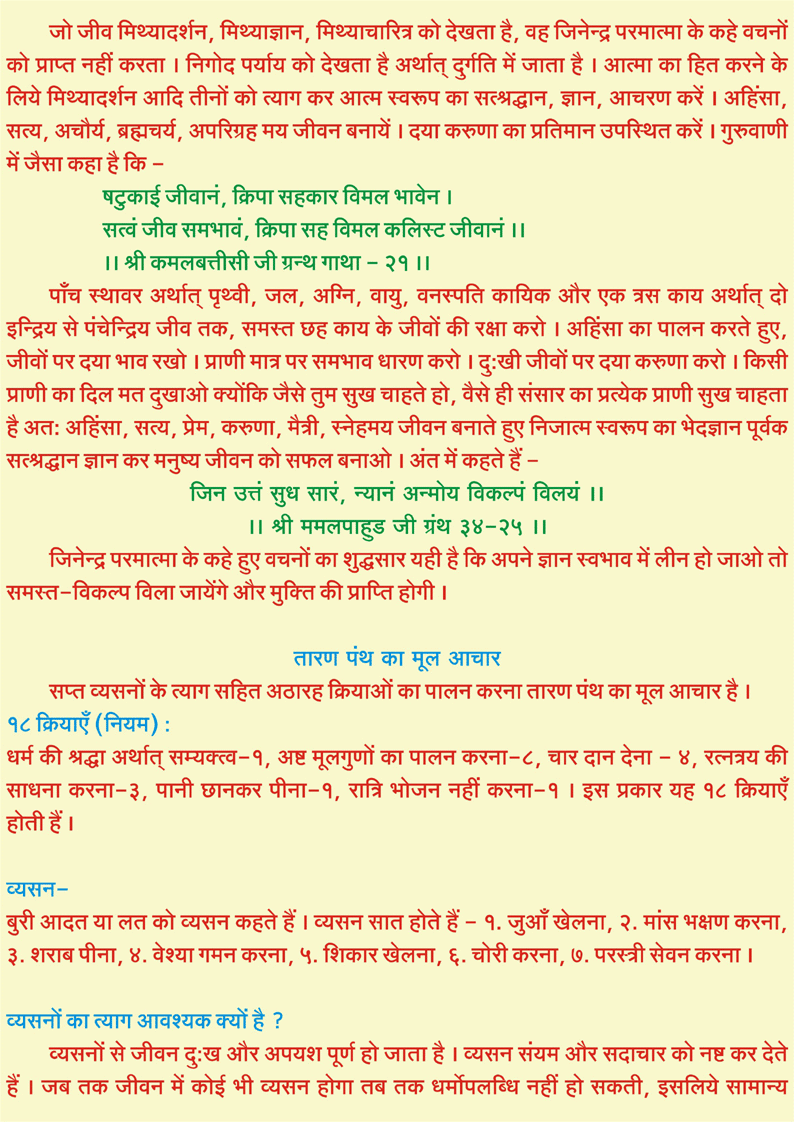 जो जीव मिथ्यादर्शन, मिथ्याज्ञान, मिथ्याचारित्र को देखता है, वह जिनेन्द्र परमात्मा के कहे वचनों
को प्राप्त नहीं करता । निगोद पर्याय को देखता है अर्थात् दुर्गति में जाता है । आत्मा का हित करने के
लिये मिथ्यादर्शन आदि तीनों को त्याग कर आत्म स्वरूप का सत्श्रद्धान, ज्ञान, आचरण करें । अहिंसा,
सत्य, अचौर्य, ब्रह्मचर्य, अपरिग्रह मय जीवन बनायें । दया करुणा का प्रतिमान उपस्थित करें । गुरुवाणी
में जैसा कहा है कि –
षटुकाई जीवानं, क्रिपा सहकार विमल भावेन ।
सत्वं जीव समभावं, क्रिपा सह विमल कलिस्ट जीवानं ।।
।। श्री कमलबत्तीसी जी ग्रन्थ गाथा – २१ ।।
पाँच स्थावर अर्थात् पृथ्वी, जल, अग्नि, वायु, वनस्पति कायिक और एक त्रस काय अर्थात् दो
इन्द्रिय से पंचेन्द्रिय जीव तक, समस्त छह काय के जीवों की रक्षा करो । अहिंसा का पालन करते हुए,
जीवों पर दया भाव रखो । प्राणी मात्र पर समभाव धारण करो । दु:खी जीवों पर दया करुणा करो । किसी
प्राणी का दिल मत दुखाओ क्योंकि जैसे तुम सुख चाहते हो, वैसे ही संसार का प्रत्येक प्राणी सुख चाहता
है अत: अहिंसा, सत्य, प्रेम, करुणा, मैत्री, स्नेहमय जीवन बनाते हुए निजात्म स्वरूप का भेदज्ञान पूर्वक
सत्श्रद्धान ज्ञान कर मनुष्य जीवन को सफल बनाओ । अंत में कहते हैं –
जिन उत्तं सुध सारं, न्यानं अन्मोय विकल्पं विलयं ।।
।। श्री ममलपाहुड जी ग्रंथ ३४–२५ ।।
जिनेन्द्र परमात्मा के कहे हुए वचनों का शुद्धसार यही है कि अपने ज्ञान स्वभाव में लीन हो जाओ तो
समस्त–विकल्प विला जायेंगे और मुक्ति की प्राप्ति होगी ।
तारण पंथ का मूल आचार
सप्त व्यसनों के त्याग सहित अठारह क्रियाओं का पालन करना तारण पंथ का मूल आचार है ।
१८ क्रियाएँ (नियम) :
धर्म की श्रद्धा अर्थात् सम्यक्त्व–१, अष्ट मूलगुणों का पालन करना–८, चार दान देना – ४, रत्नत्रय की
साधना करना–३, पानी छानकर पीना–१, रात्रि भोजन नहीं करना–१ । इस प्रकार यह १८ क्रियाएँ
होती हैं ।
व्यसन–
बुरी आदत या लत को व्यसन कहते हैं । व्यसन सात होते हैं – १. जुआँ खेलना, २. मांस भक्षण करना,
३. शराब पीना, ४. वेश्या गमन करना, ५. शिकार खेलना, ६. चोरी करना, ७. परस्त्री सेवन करना ।
व्यसनों का त्याग आवश्यक क्यों है ?
व्यसनों से जीवन दु:ख और अपयश पूर्ण हो जाता है । व्यसन संयम और सदाचार को नष्ट कर देते
हैं । जब तक जीवन में कोई भी व्यसन होगा तब तक धर्मोपलब्धि नहीं हो सकती, इसलिये सामान्य